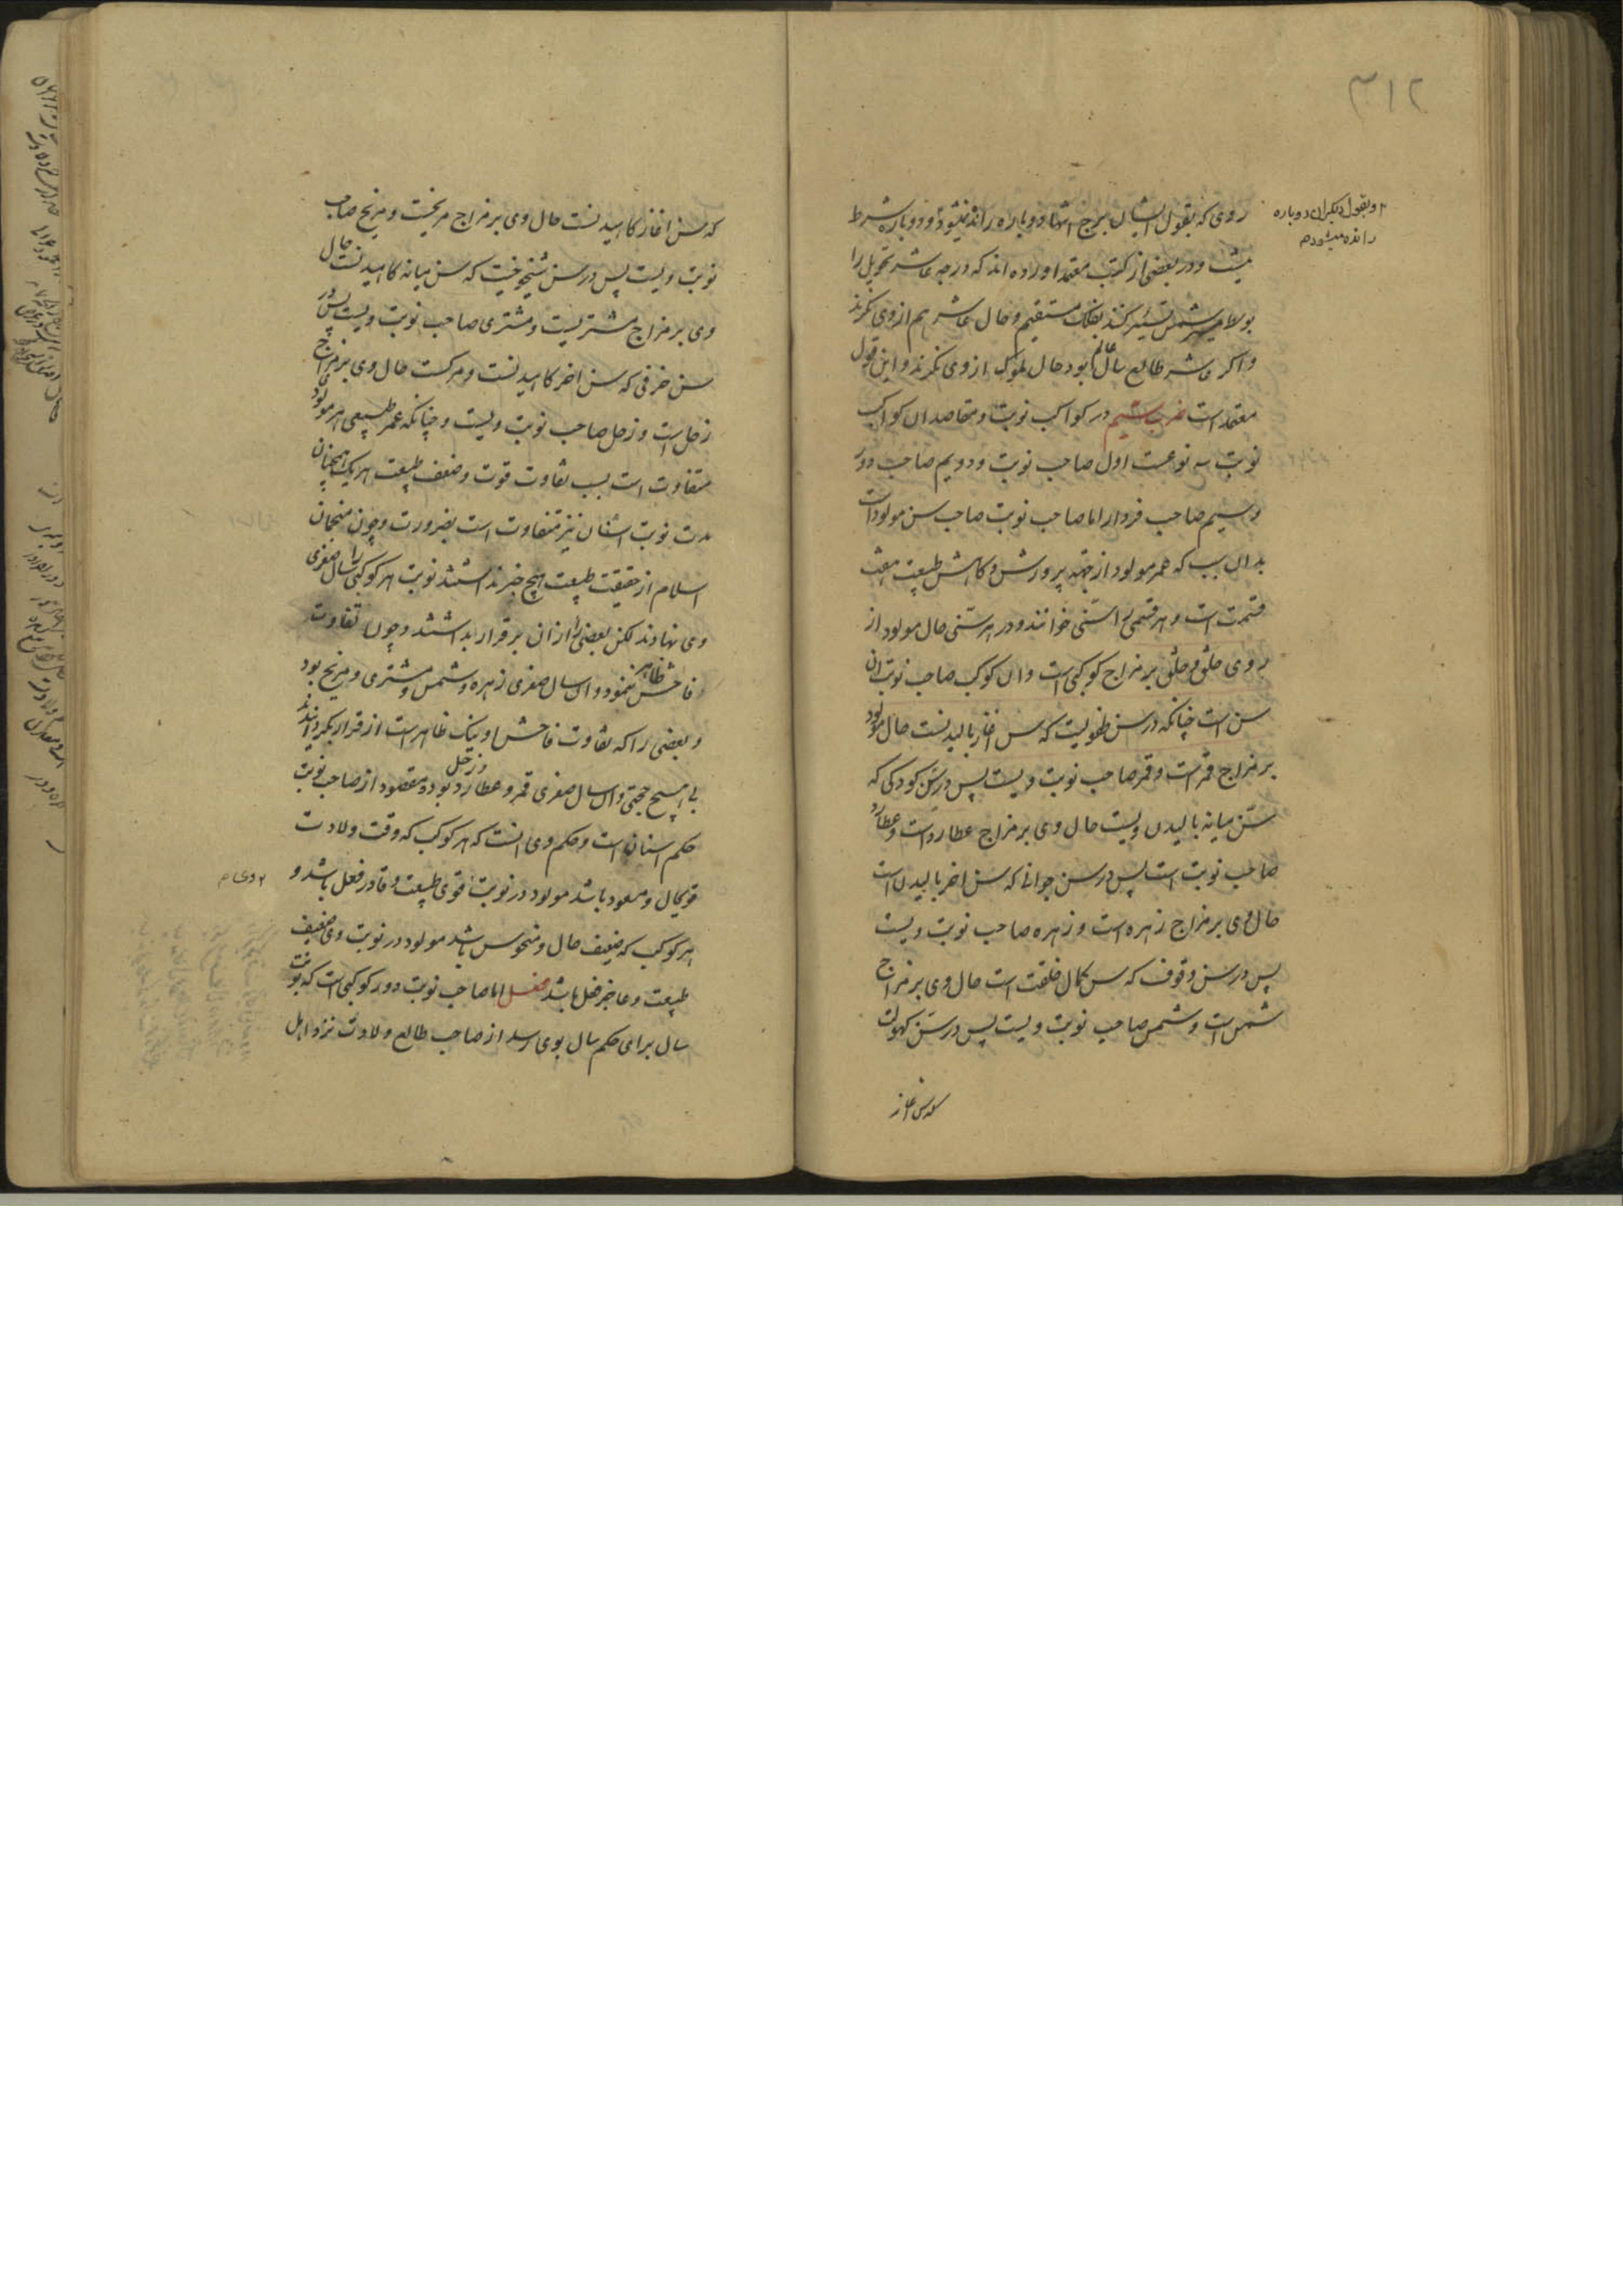 ۳۱۲
روی که بقول ایشان برج انتها دوباره رانده نمیشود و دوباره شرط
و بقول دیگران دوباره
رانده میشود م
نیست و در بعضی از کتب معتمد اورده اند که درجه عاشر تحویل را
بوسط شمس تسییر کنند بفلک مستقیم و حال عاشر هم از وی نکرند
و اکر عاشر طالع سال عالم بود حال ملوک از وی نکرند و این قول
معتمد است ششم در کواکب نوبت و مقاصد ان کواکب
نوبت سه نوعست اول صاحب نوبت و دویم صاحب دور
و سیم صاحب فردار اما صاحب نوبت صاحب سن مولود است
بدان سبب که عمر مولود از جهة پرورش و کاهش طبیعت هفت
قسمت است و هر قسمی را سنی خوانند و در هر سنی حال مولود از
روی خلق و خلق بر مزاج کوکبی است و ان کوکب صاحب نوبت ان
سن است چنانکه در سن طفولیت که سن اغاز بالیدنست حال مولود
بر مزاج قمر است و قمر صاحب نوبت ویست پس در سن کودکی که
سن میانه بالیدن ویست حال وی بر مزاج عطارد است و عطارد
صاحب نوبت است پس در سن جوانی که سن اخر بالیدن است
حال وی بر مزاج زهره است و زهره صاحب نوبت ویست
پس در سن وقوف که سن کمال خلقت است حال وی بر مزاج
شمس است و شمس صاحب نوبت ویست پس در سن کهولت
که سن اغاز
که سن اغاز کاهیدنست حال وی بر مزاج مریخست و مریخ صاحب
نوبت ویست پس در سن شیخوخیت که سن میانه کاهیدنست حال
وی بر مزاج مشتریست و مشتری صاحب نوبت ویست پس در
سن خرفی که سن اخر کاهیدنست و مرکست حال وی بر مزاج
زحل است و زحل صاحب نوبت ویست و چنانکه عمر طبیعی هر مولودی
متفاوت است بسبب تفاوت قوت و ضعف طبیعت هر یک همچنان
مدت نوبت اسنان نیز متفاوت است بضرورت و چون منجمان
اسلام از حقیقت طبیعت هیچ خبر نداشتند نوبت هر کوکبی را سال صغری
وی نهادند لکن بعضی را از ان بر قرار بداشتند و چون تفاوت
فاحش ظاهر ننمود و ان سال صغری زهره و شمس و مشتری و مریخ بود
و بعضی را که تفاوت فاحش او نیک ظاهر است از قرار بکردانیدند
بی هیچ حجتی و ان سال صغری قمر و عطارد و زحل بود و مقصود از صاحب نوبت
حکم اسنان است و حکم وی انست که هر کوکب که وقت ولادت
قویحال و مسعود باشد مولود در نوبت قوی طبیعت و قادر فعل باشد و
وی م
هر کوکب که ضعیف حال و منحوس باشد مولود در نوبت وی ضعیف
طبیعت و عاجز فعل باشد فصل اما صاحب نوبت دور کوکبی است که نوبت
سال برای حکم سال بوی رسد از صاحب طالع ولادت نزد اهل